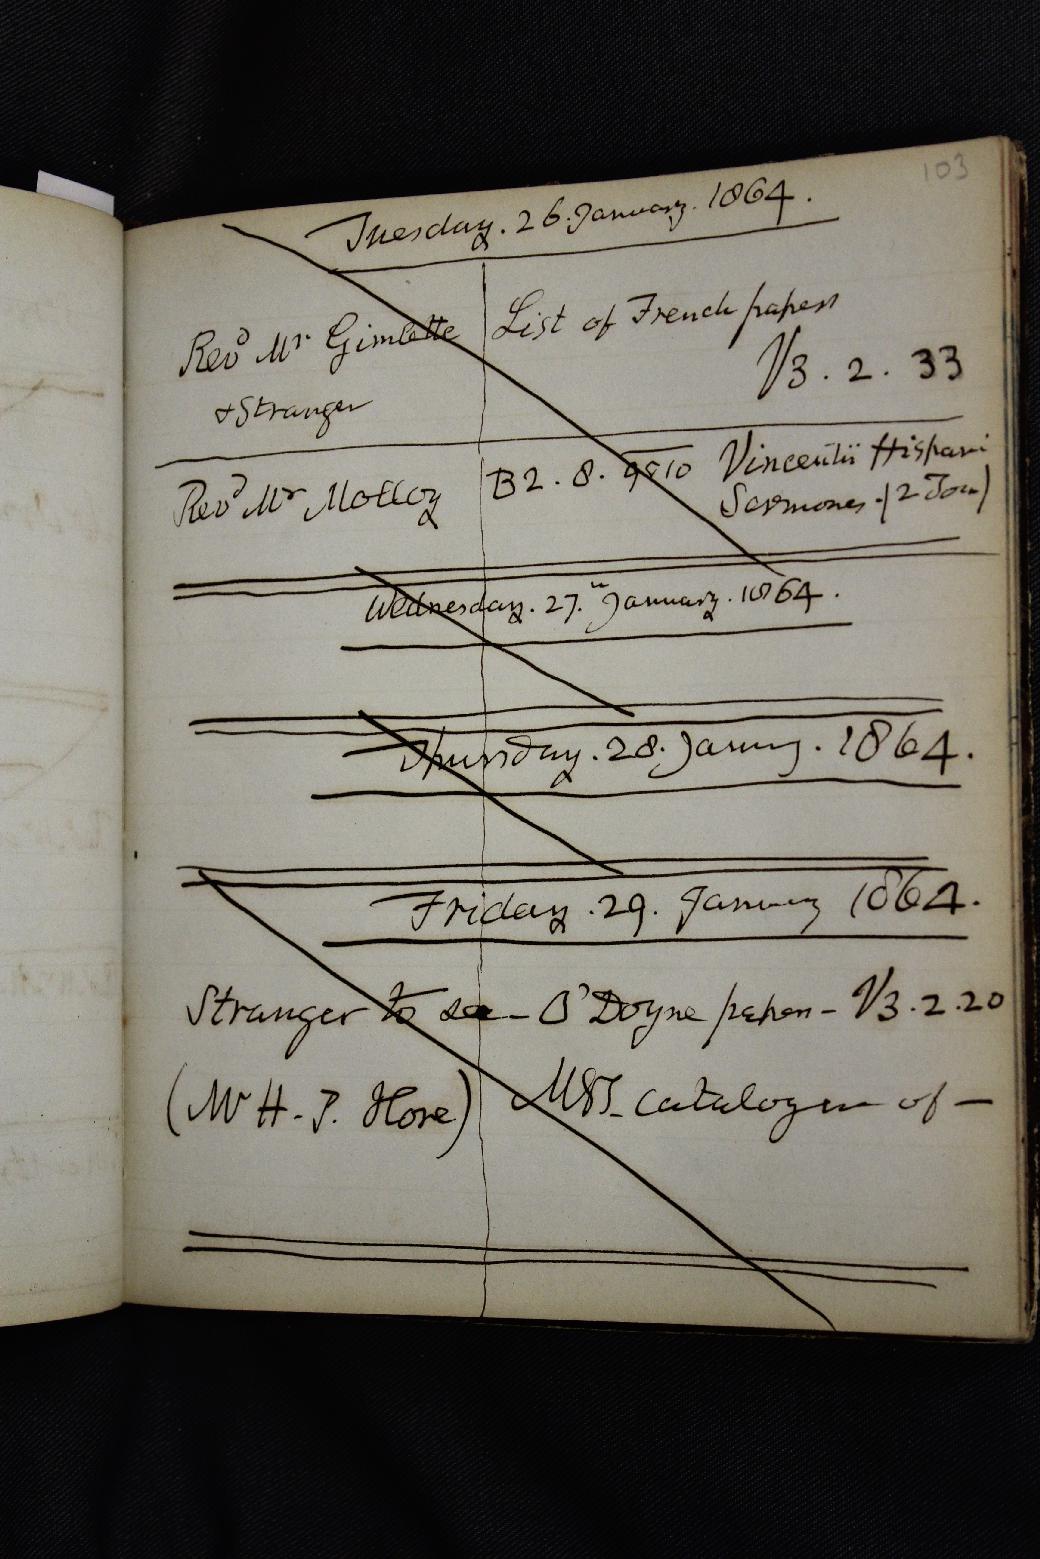 103
Tuesday. 26. January. 1864.
Revd Mr Gimlette List of French papers
V3. 2. 33
& Stranger
Revd Mr Molloy B2. 8. 9&10 Vincentii Hispani
Sermones. (2 Tom)
Wednesday. 27. January. 1864.
Thursday. 28. January. 1864.
Friday. 29. January 1864.
Stranger to see - O'Doyne papers - V3. 2. 20
(Mr H. P. Hore) MSS_ catalogue of -